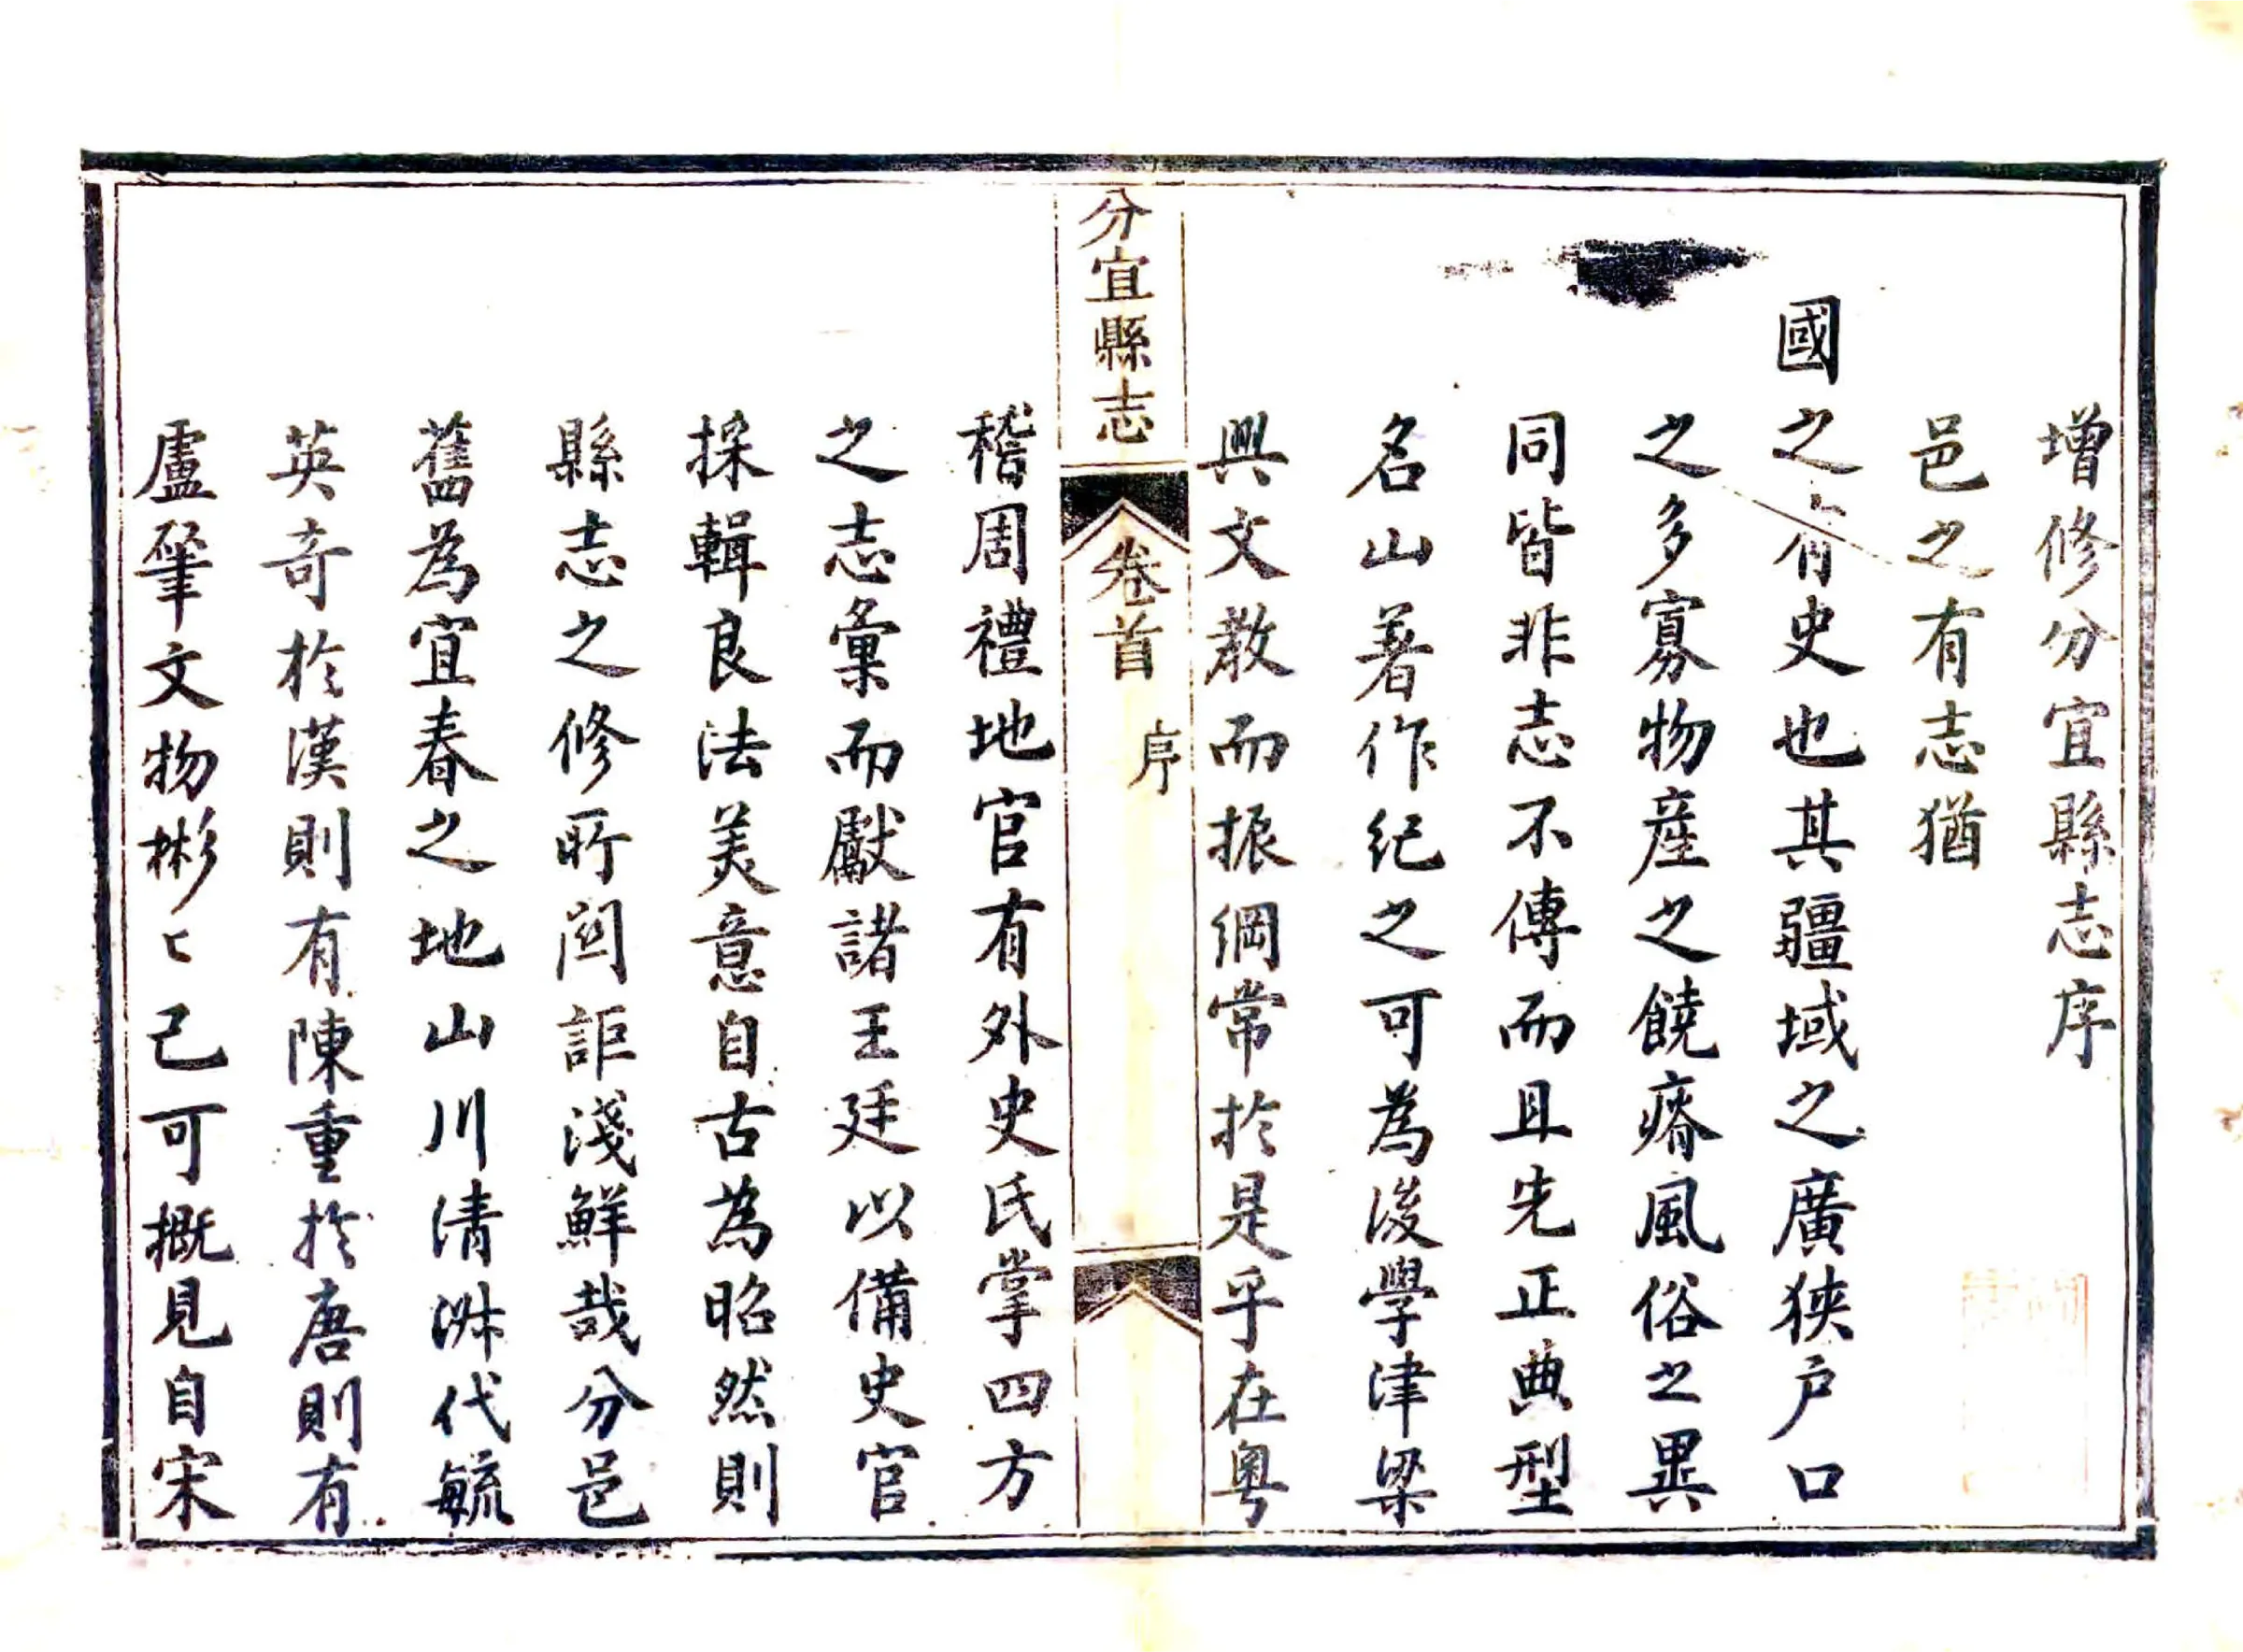 增修分宜縣志序
邑之有志猶
國之有史也其疆域之廣狹户口
之多寡物產之饒瘠風俗之異
同皆非志不傳而且先正典型
名山著作紀之可為後學津梁
興文教而振綱常於是乎在粵
分宜縣志 卷首 序
稽周禮地官有外史氏掌四方
之志彙而獻諸王廷以備史官
採輯良法美意自古為昭然則
縣志之修所関詎淺鮮哉分邑
舊為宜春之地山川清淑代毓
英奇於漢則有陳重於唐則有
盧肇文物彬〻已可概見自宋